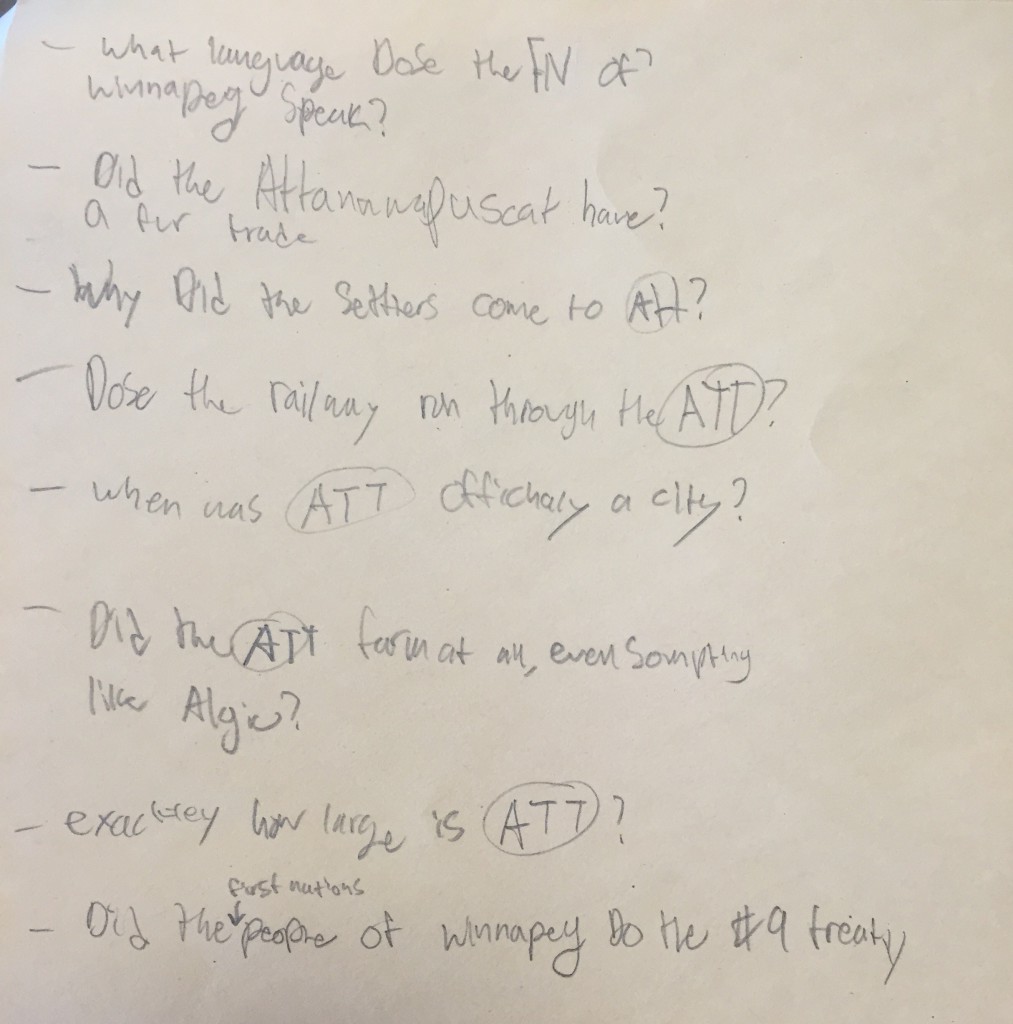 - what language Dose the FN of?
winnapeg Speak?
- Did the Attanawapuscat have?
a fur trade
- Why Did the Settlers come to Att?
- Dose the railway run through the ATT?
- when was ATT offichaly a city?
- Did the ATT farm at all, even Sompthing
like Algie?
- exactley how large is ATT?
first nations
- Did the people of winnapeg Do the #9 treaty